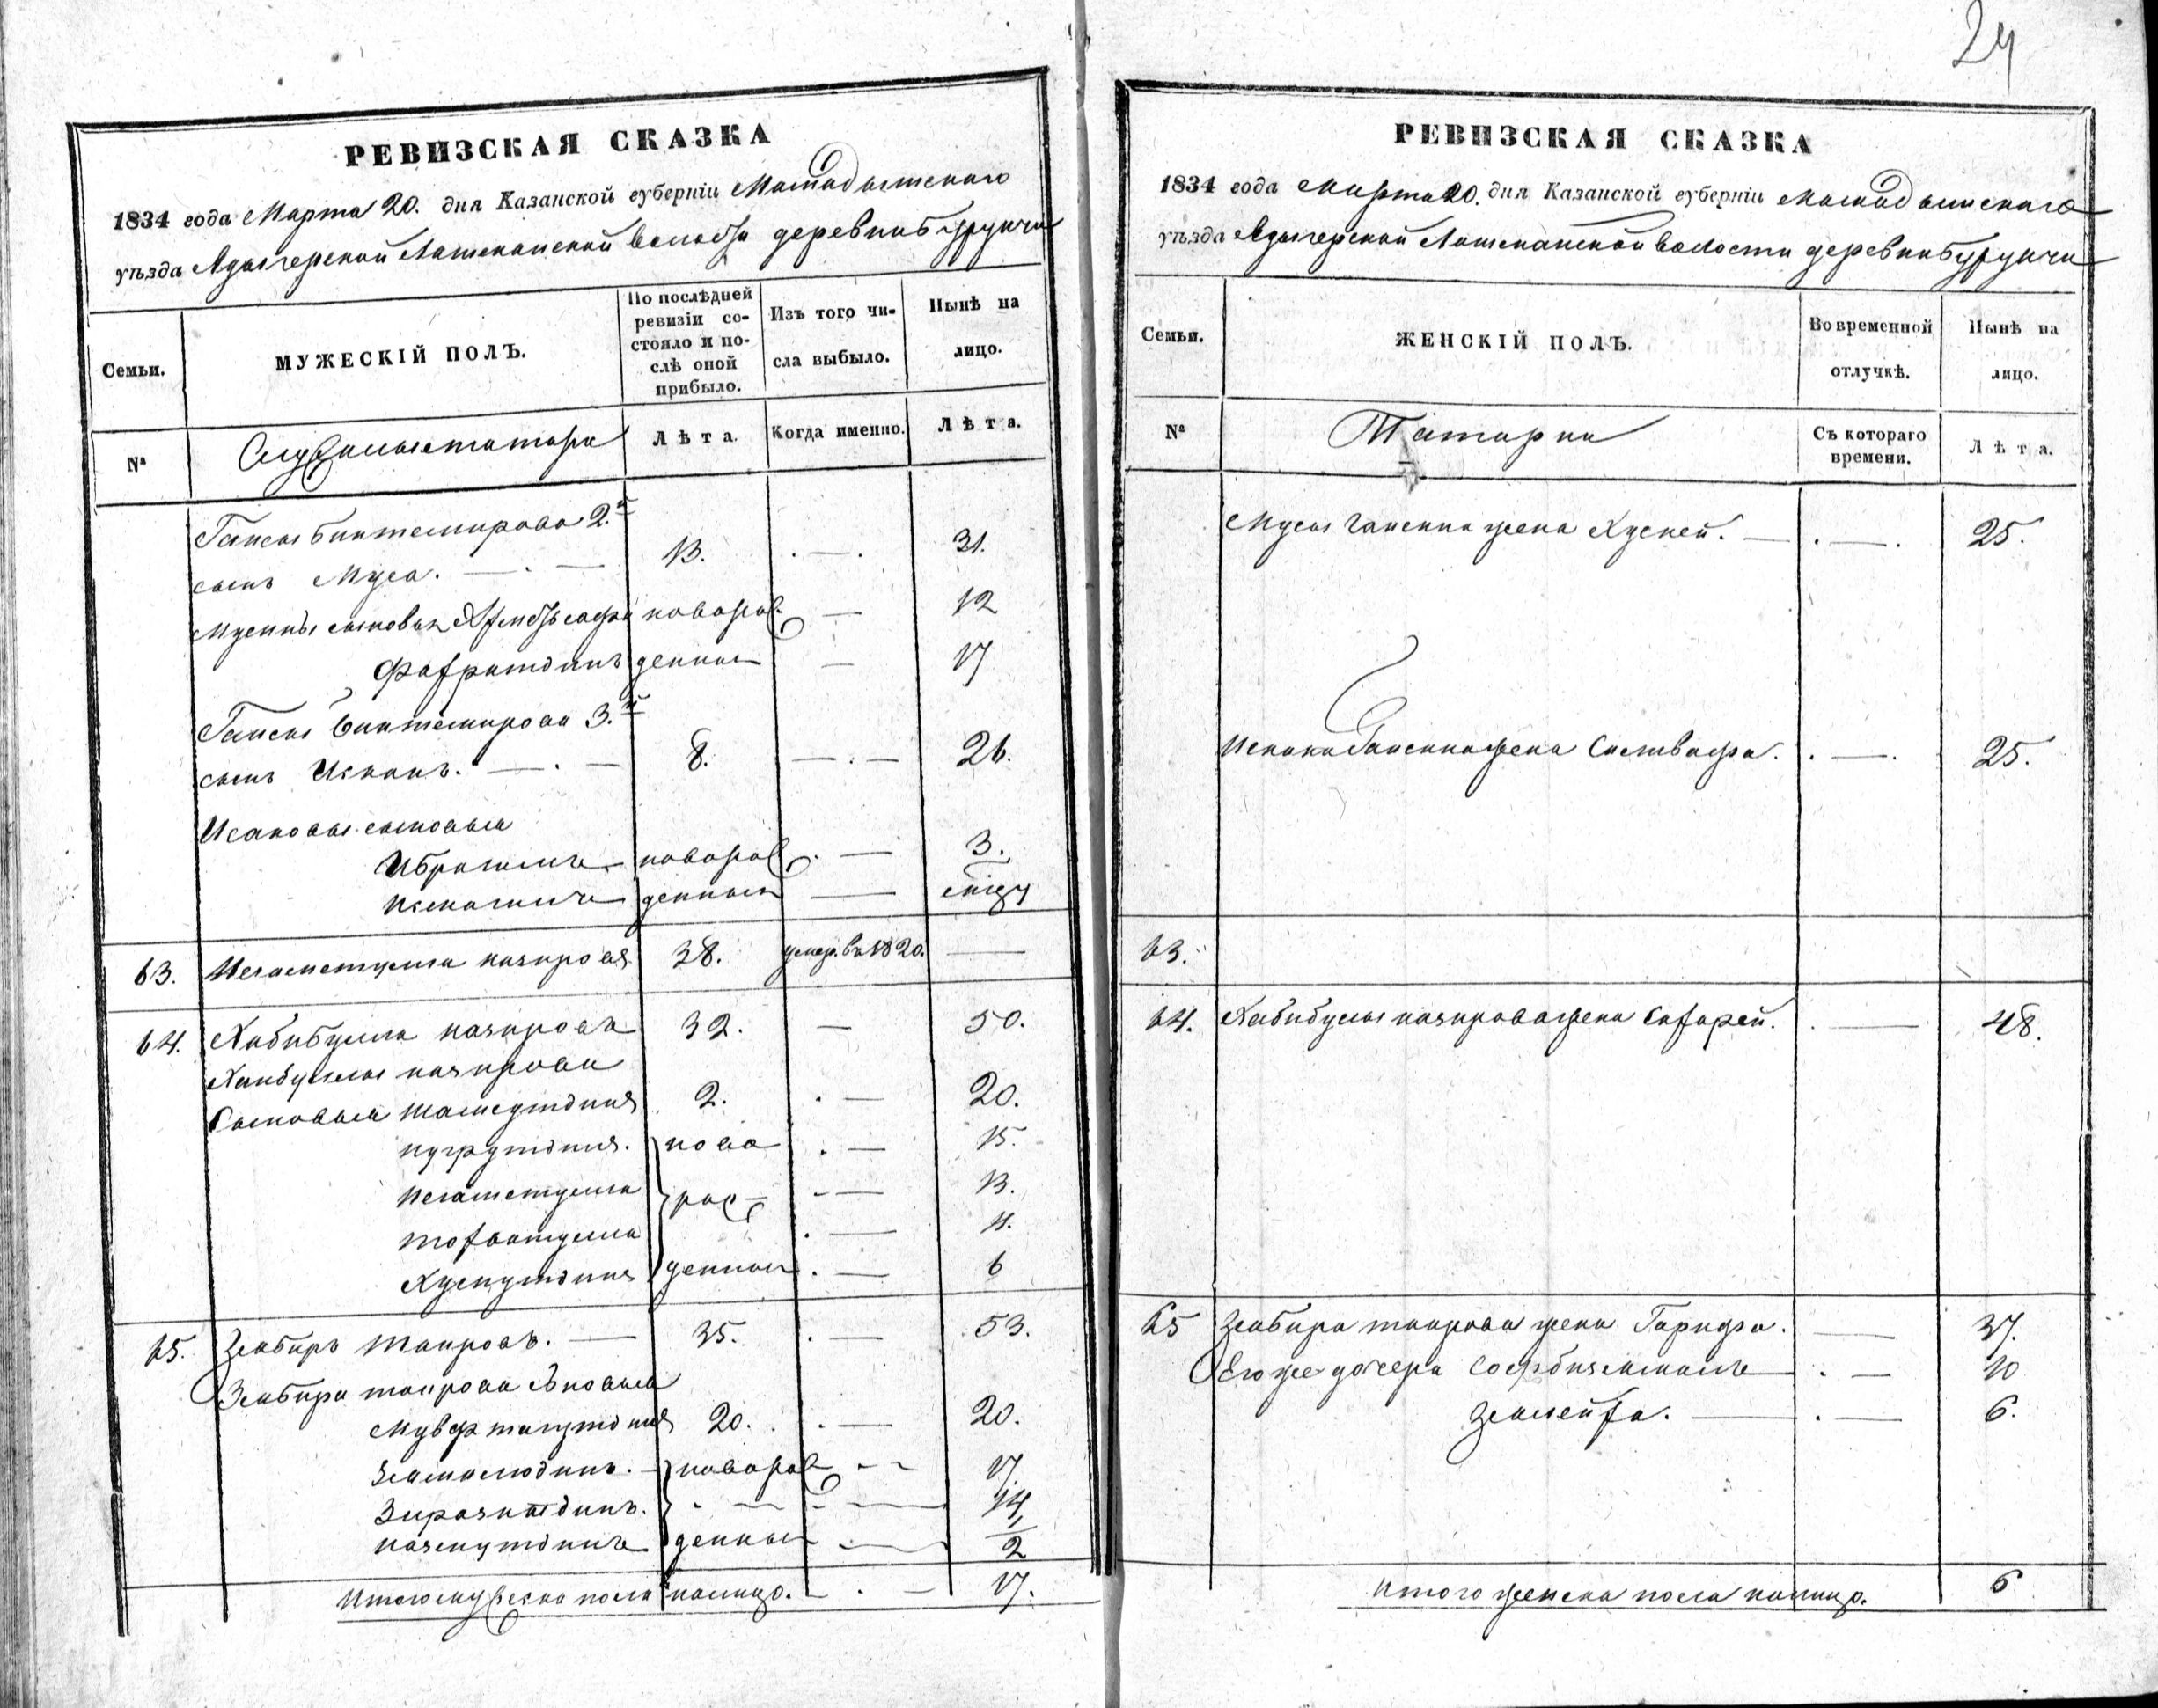 24
РЕВИЗСКАЯ СКАЗКА
1834 года Марта 20. дня Казанской губерніи Мамадышскаго
уѣзда волости деревни Бурунчи
Семьи.
МУЖЕСКІЙ ПОЛЪ.
По послѣдней ревизіи со-
стояло и по-
слѣ оной
прибыло.
Изъ того чи-
сла выбыло.
Нынѣ на
лицо.
№
Служилые татара
Лѣта.
Когда именно.
Лѣта.
Гапсы Биктемирова 2.й
сынъ Муса. 13. 31.
Мусины сыновья новорож 12
Фахратдинъ денные 17
Гапсы Биктемирова 3.й
сынъ Исхакъ. 8. 26.
Исаковы сыновья
Ибрагимъ новорож 3.
денные
63. Негаметулла Назировъ 38. умер. въ 1820.
64. Хабибулла Назировъ 32. 50.
Хабибуллы Назирова
Сыновья 2. 20.
ново 15.
Негаметулла рож 13.
11.
Хуснутдинъ денные 6
65. Зябиръ Таировъ. 35. 53.
Зябира Таирова сыновья
20. 20.
Замалюдинъ. новорож 17.
14
денные 2
Итого мужеска пола налицо. 17.
РЕВИЗСКАЯ СКАЗКА
1834 года Марта 20. дня Казанской губерніи Мамадышскаго
уѣзда волости деревни Бурунчи
Семьи.
ЖЕНСКІЙ ПОЛЪ.
Во временной
отлучкѣ.
Нынѣ на
лицо.
№
Татарки
Съ котораго
времени.
Лѣта.
Мусы Гапсина жена Хусней. 25.
Исхака Гапсина жена 25.
63.
64. Хабибуллы Назирова жена Сахарей. 48.
65 Зябира Таирова жена Гарифа. 37.
Его же дочери 10
Залейха. 6.
Итого женска пола налицо. 6